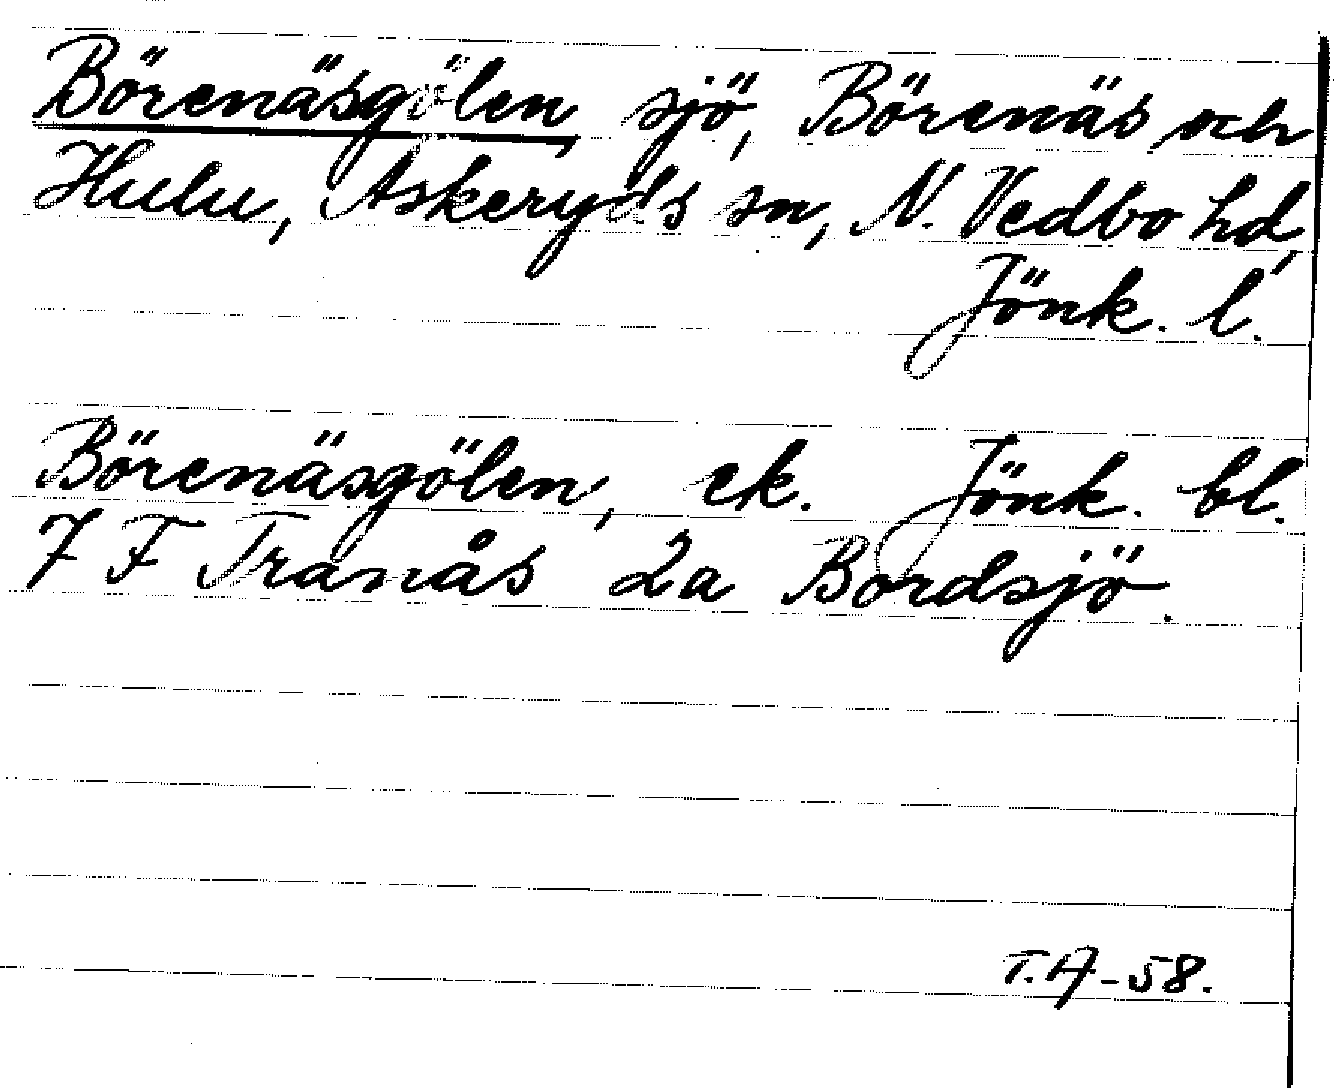 Börenäsgölen, sjö, Börenäs och
Hulu, Askeryds sn, N. Vedbo hd,
Jönk. l.
Börenäsgölen, ek. Jönk. bl.
7 F Tranås 2a Bordsjö.
T.A-58.